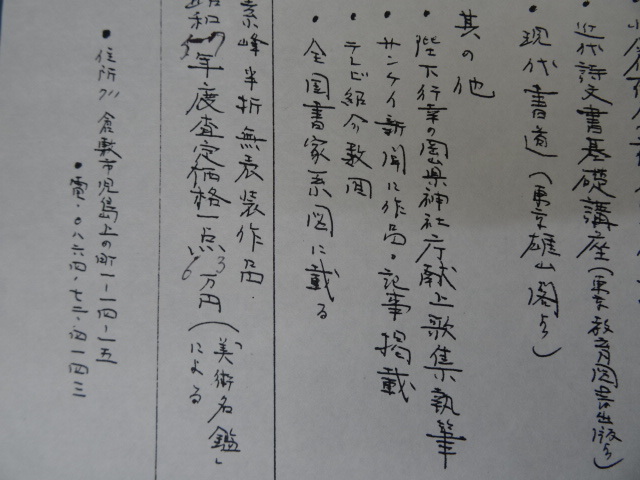 近代詩文書基礎講座（東京教育図書出版より）
・現代書道（東京雄山閣より）
其の他
・陛下行幸の岡山県神社庁献上歌集執筆
・サンケイ新聞に作品・記事掲載
・テレビ紹介数回
・全国書家系図に載る
素峰半折無表装作品
昭和57年度査定価格一点63万円（「美術名鑑」による
・住所 倉敷市児島上の町一ー一四ー一五
・電・〇八六四・七二・四一四三